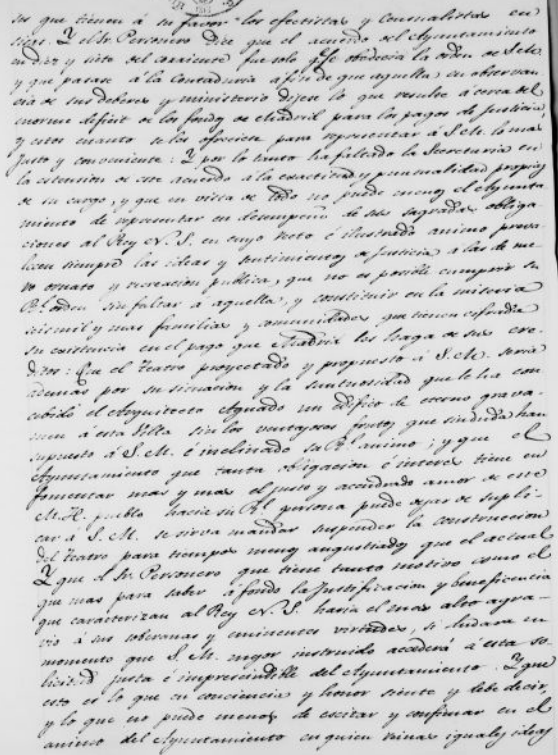 sos que tienen á su favor los efectistas y Consualistas en
ticas. Y el Sr. Personero dice que el acuerdo del Ayuntamiento
en diez y siete del corriente fue solo qe. se obedecia la orden de S. M.
y que pasase á la Contaduria á fin de que aquella en observan
cia de sus deberes y ministerio dijese lo que resulte á cerca del
enorme deficit de los fondos de Madrid para los pagos de Justicia,
y estos cuanto se los ofreciese para representar á S. M. lo mas
justo y conveniente: Y por lo tanto ha faltado la Secretaria en
la estension de este acuerdo á la exactitud y puntualidad propias
de su cargo, y que en vista de todo no puede menos el Ayunta
miento de representar en desempeño de sus sagradas obliga
ciones al Rey N. S. en cuyo recto é ilustrado animo preva
lecen siempre las ideas y sentimientos de Justicia á las de me
ro ornato y recreacion publica, que no es posible cumplir su
Rl. orden sin faltar á aquella, y constituir en la miseria
seis mil y mas familias y comunidades que tienen cifrada
su existencia en el pago que Madrid les haga de sus cre
ditos: Que el Teatro proyectado y propuesto á S. M. seria
ademas por su situacion y la suntuosidad que le ha con
cebido el Arquitecto Aguado un edificio de eterno grava
men á esta Villa sin los ventajosos frutos que sin duda han
supuesto á S. M. é inclinado su Rl. animo; y que el
Ayuntamiento que tanta obligacion é interes tiene en
fomentar mas y mas el justo y acendrado amor de este
M. H. pueblo hacia su Rl. persona puede dejar de supli
car á S. M. se sirva mandar suspender la construccion
del Teatro para tiempos menos angustiados que el actual
Y que el Sr. Personero que tiene tanto motivo como el
que mas para saber á fondo la Justificacion y beneficencia
que caracterizan al Rey N. S. haria el mas alto agra-
vio á sus soberanas y eminentes virtudes, si dudara un
momento que S. M. mejor instruido accederá á esta so
licitud justa é imprescindible del Ayuntamiento. Y que
esto es lo que en conciencia y honor siente y debe decir,
y lo que no puede menos de escitar y confirmar en el
animo del Ayuntamiento en quien reinas iguales ideas